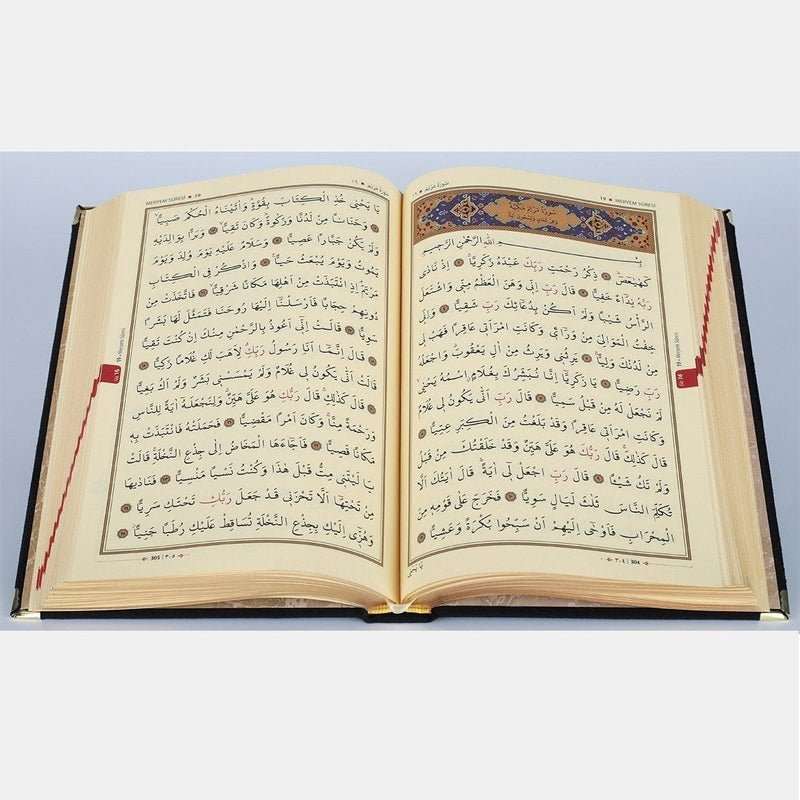 سُورَةُ مَرْيَمَ
19 • MERYEM SÛRESİ
بِسْمِ اللّٰهِ الرَّحْمٰنِ الرَّحِيمِ
كٓهٰيٰعٓصٓ ۞ ذِكْرُ رَحْمَتِ رَبِّكَ عَبْدَهُ زَكَرِيَّا ۞ اِذْ نَادٰى
رَبَّهُ نِدَٓاءً خَفِيًّا ۞ قَالَ رَبِّ اِنّٖى وَهَنَ الْعَظْمُ مِنّٖى وَاشْتَعَلَ
الرَّأْسُ شَيْبًا وَلَمْ اَكُنْ بِدُعَٓائِكَ رَبِّ شَقِيًّا ۞ وَاِنّٖى
خِفْتُ الْمَوَالِىَ مِنْ وَرَٓائٖى وَكَانَتِ امْرَاَتٖى عَاقِرًا فَهَبْ لٖى
مِنْ لَدُنْكَ وَلِيًّا ۞ يَرِثُنٖى وَيَرِثُ مِنْ اٰلِ يَعْقُوبَ وَاجْعَلْهُ
رَبِّ رَضِيًّا ۞ يَا زَكَرِيَّٓا اِنَّا نُبَشِّرُكَ بِغُلَامٍ اسْمُهُ يَحْيٰى
لَمْ نَجْعَلْ لَهُ مِنْ قَبْلُ سَمِيًّا ۞ قَالَ رَبِّ اَنّٰى يَكُونُ لٖى غُلَامٌ
وَكَانَتِ امْرَاَتٖى عَاقِرًا وَقَدْ بَلَغْتُ مِنَ الْكِبَرِ عِتِيًّا ۞
قَالَ كَذٰلِكَ قَالَ رَبُّكَ هُوَ عَلَىَّ هَيِّنٌ وَقَدْ خَلَقْتُكَ مِنْ قَبْلُ
وَلَمْ تَكُ شَيْـًٔا ۞ قَالَ رَبِّ اجْعَلْ لٖٓى اٰيَةً قَالَ اٰيَتُكَ اَلَّا
تُكَلِّمَ النَّاسَ ثَلٰثَ لَيَالٍ سَوِيًّا ۞ فَخَرَجَ عَلٰى قَوْمِهٖ مِنَ
الْمِحْرَابِ فَاَوْحٰٓى اِلَيْهِمْ اَنْ سَبِّحُوا بُكْرَةً وَعَشِيًّا ۞
٣٠٤ | 304
19 - Meryem Sûresi
Cüz 16
MERYEM SÛRESİ • 19
سُورَةُ مَرْيَمَ
يَا يَحْيٰى خُذِ الْكِتَابَ بِقُوَّةٍ وَاٰتَيْنَاهُ الْحُكْمَ صَبِيًّا
۞ وَحَنَانًا مِنْ لَدُنَّا وَزَكٰوةً وَكَانَ تَقِيًّا ۞ وَبَرًّا بِوَالِدَيْهِ
وَلَمْ يَكُنْ جَبَّارًا عَصِيًّا ۞ وَسَلَامٌ عَلَيْهِ يَوْمَ وُلِدَ وَيَوْمَ
يَمُوتُ وَيَوْمَ يُبْعَثُ حَيًّا ۞ وَاذْكُرْ فِى الْكِتَابِ
مَرْيَمَ اِذِ انْتَبَذَتْ مِنْ اَهْلِهَا مَكَانًا شَرْقِيًّا ۞ فَاتَّخَذَتْ مِنْ
دُونِهِمْ حِجَابًا فَاَرْسَلْنَٓا اِلَيْهَا رُوحَنَا فَتَمَثَّلَ لَهَا بَشَرًا
سَوِيًّا ۞ قَالَتْ اِنّٖٓى اَعُوذُ بِالرَّحْمٰنِ مِنْكَ اِنْ كُنْتَ تَقِيًّا
۞ قَالَ اِنَّمَٓا اَنَا رَسُولُ رَبِّكِ لِاَهَبَ لَكِ غُلَامًا زَكِيًّا ۞
قَالَتْ اَنّٰى يَكُونُ لٖى غُلَامٌ وَلَمْ يَمْسَسْنٖى بَشَرٌ وَلَمْ اَكُ بَغِيًّا
۞ قَالَ كَذٰلِكِ قَالَ رَبُّكِ هُوَ عَلَىَّ هَيِّنٌ وَلِنَجْعَلَهُٓ اٰيَةً لِلنَّاسِ
وَرَحْمَةً مِنَّا وَكَانَ اَمْرًا مَقْضِيًّا ۞ فَحَمَلَتْهُ فَانْتَبَذَتْ بِهٖ
مَكَانًا قَصِيًّا ۞ فَاَجَٓاءَهَا الْمَخَاضُ اِلٰى جِذْعِ النَّخْلَةِ قَالَتْ
يَا لَيْتَنٖى مِتُّ قَبْلَ هٰذَا وَكُنْتُ نَسْيًا مَنْسِيًّا ۞ فَنَادٰيهَا
مِنْ تَحْتِهَٓا اَلَّا تَحْزَنٖى قَدْ جَعَلَ رَبُّكِ تَحْتَكِ سَرِيًّا ۞
وَهُزّٖٓى اِلَيْكِ بِجِذْعِ النَّخْلَةِ تُسَاقِطْ عَلَيْكِ رُطَبًا جَنِيًّا ۞
305 | ٣٠٥
19 - Meryem Sûresi
Cüz 16